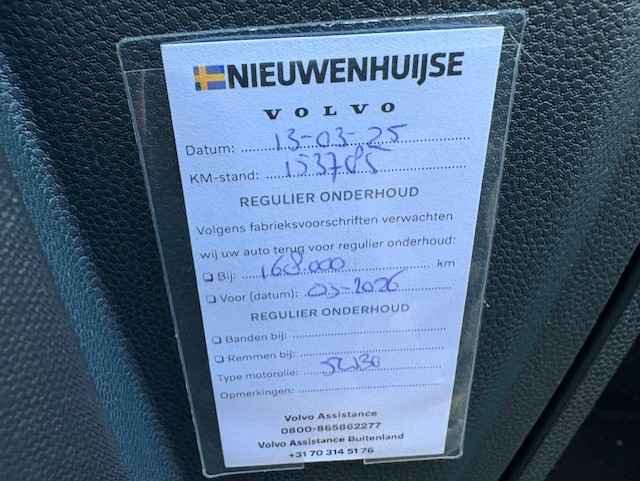 NIEUWENHUIJSE
VOLVO
Datum: 13-03-25
KM-stand: 153785
REGULIER ONDERHOUD
Volgens fabrieksvoorschriften verwachten
wij uw auto terug voor regulier onderhoud:
Bij: 168.000 km
Voor (datum): 03-2026
REGULIER ONDERHOUD
Banden bij:
Remmen bij:
Type motorolie: 5W30
Opmerkingen:
Volvo Assistance
0800-865862277
Volvo Assistance Buitenland
+31 70 314 51 76